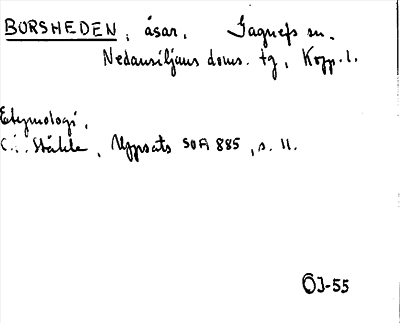 BORSHEDEN, åsar. Gagnefs sn.
Nedansiljans doms. tg, Kopp. l.
Etymologi.
C.I. Ståhle, Uppsats SOA 885, s. 11.
ÖJ-55